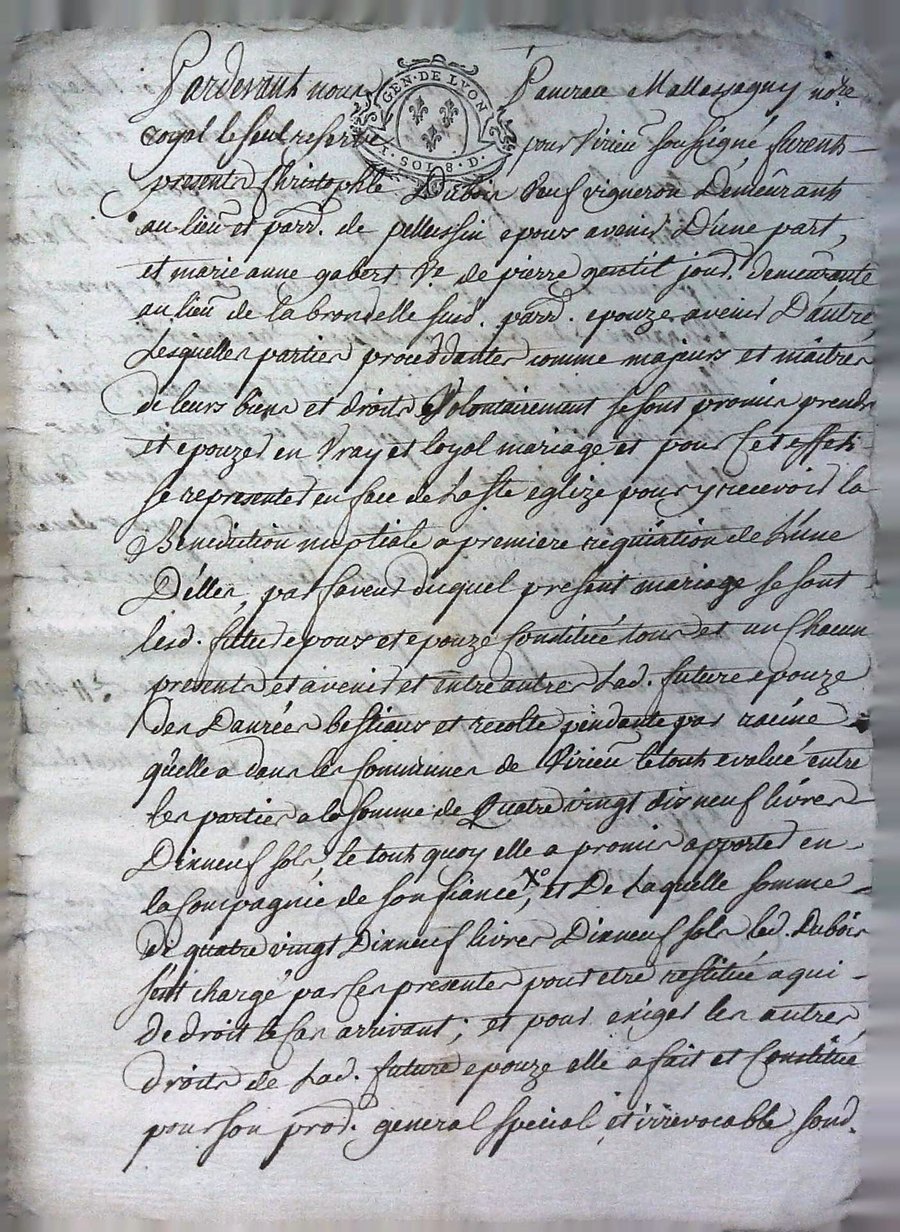 GEN · DE LYON
SOLS 8. D.
Pardevant nous Pancrace Mallassagny no.re
royal le seul reservé pour Virieu soussigné, furent
presents Christophle Dubois veuf vigneron Demeurant
au lieu et parr. de pellussin epoux avenir D'une part,
et marie anne gabert Ve. de pierre gentil jourd. demeurante
au lieu de la brondelle susd. parr. epouze avenir D'autre,
Lesquelles parties proceddantes comme majeurs et maitres
de leurs biens et droits Volontairement se sont promis prendre
et epouzer en Vray et loyol mariage et pour Cet effet
se representer en face de La Ste eglize pour y recevoir la
Benediction nuptiale a premiere requiation de L'une
D'elles, par faveur duquel present mariage se sont
lesd. futur epoux et epouze Constitué tous et un Chacun
presents et avenir et entre autres Lad. future epouze
des Danrées bestiaux et recolte pendante par racine
qu'elle a dans les Communes de Virieu le tout evalué entre
les parties a la somme de Quatre vingt dis neuf livres
Dixneuf sols, le tout quoy elle a promis apporter en
la Compagnie de son fiancé, Xo et De Laquelle somme
de quatre vingt Dixneuf livres Dixneuf sols led. Dubois
s'est chargé par Ces presentes pour etre restitué a qui
de droit le Cas arrivant; et pour exiger les autres
droits de Lad. future epouze elle a fait et Constitué
pour son prod. general special et irrevocable sond.